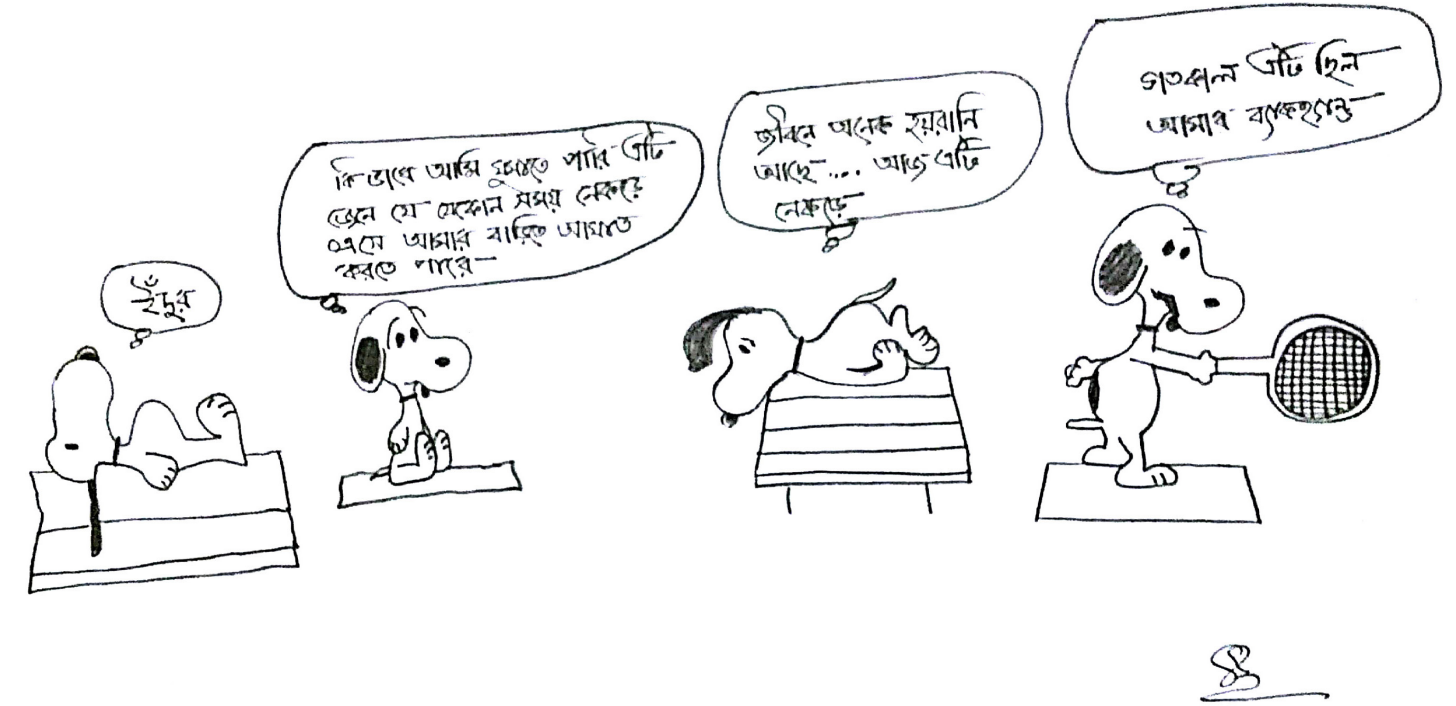 ইঁদুর
কি ভাবে আমি ঘুমাতে পারি এটি
জেনে যে যেকোন সময় নেকড়ে
এসে আমার বাড়িতে আঘাত
করতে পারে
জীবনে অনেক হয়রানি
আছে.... আজ এটি
নেকড়ে
গতকাল এটি ছিল
আমার ব্যাকহ্যান্ড